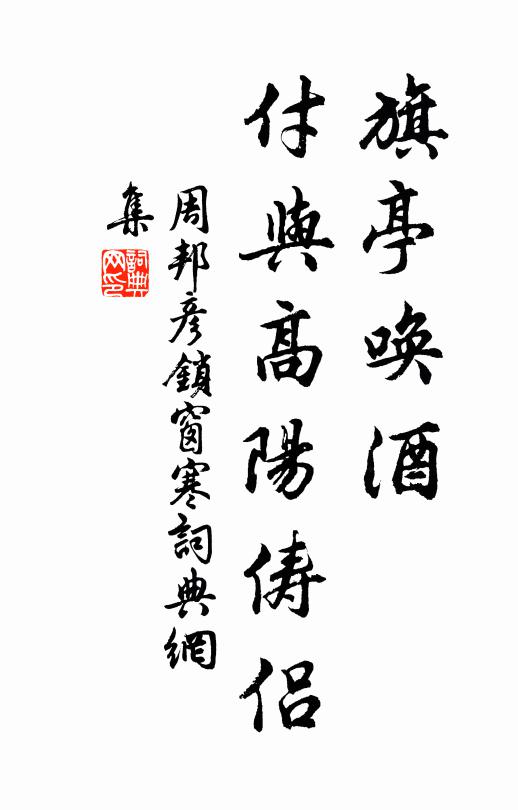 旗亭喚酒
付與高陽儔侶
周邦彥鎖窗寒詞典網
集
詞典网印